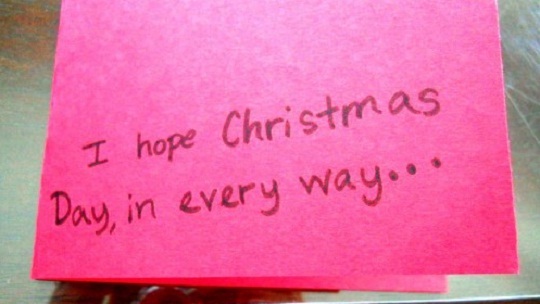 I hope Christmas
Day, in every way...